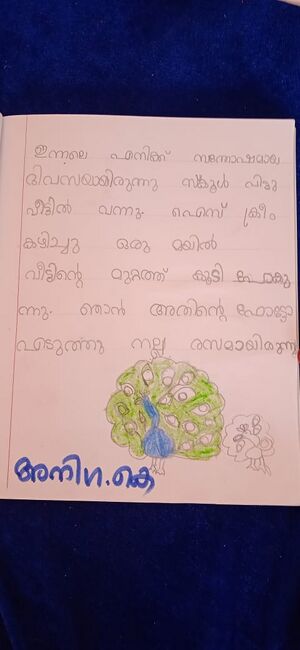 ഇന്നലെ എനിക്ക് സന്തോഷമായ
ദിവസയായിരുന്നു സ്കൂൾ വിട്ടു
വീട്ടിൽ വന്നു. ഐസ് ക്രീം
കഴിച്ചു ഒരു മയിൽ
വീട്ടിന്റെ മുറ്റത്ത് കൂടി പോകു
ന്നു. ഞാൻ അതിന്റെ ഫോട്ടോ
എടുത്തു നല്ല രസമായിരുന്നു
അനിഗ.കെ